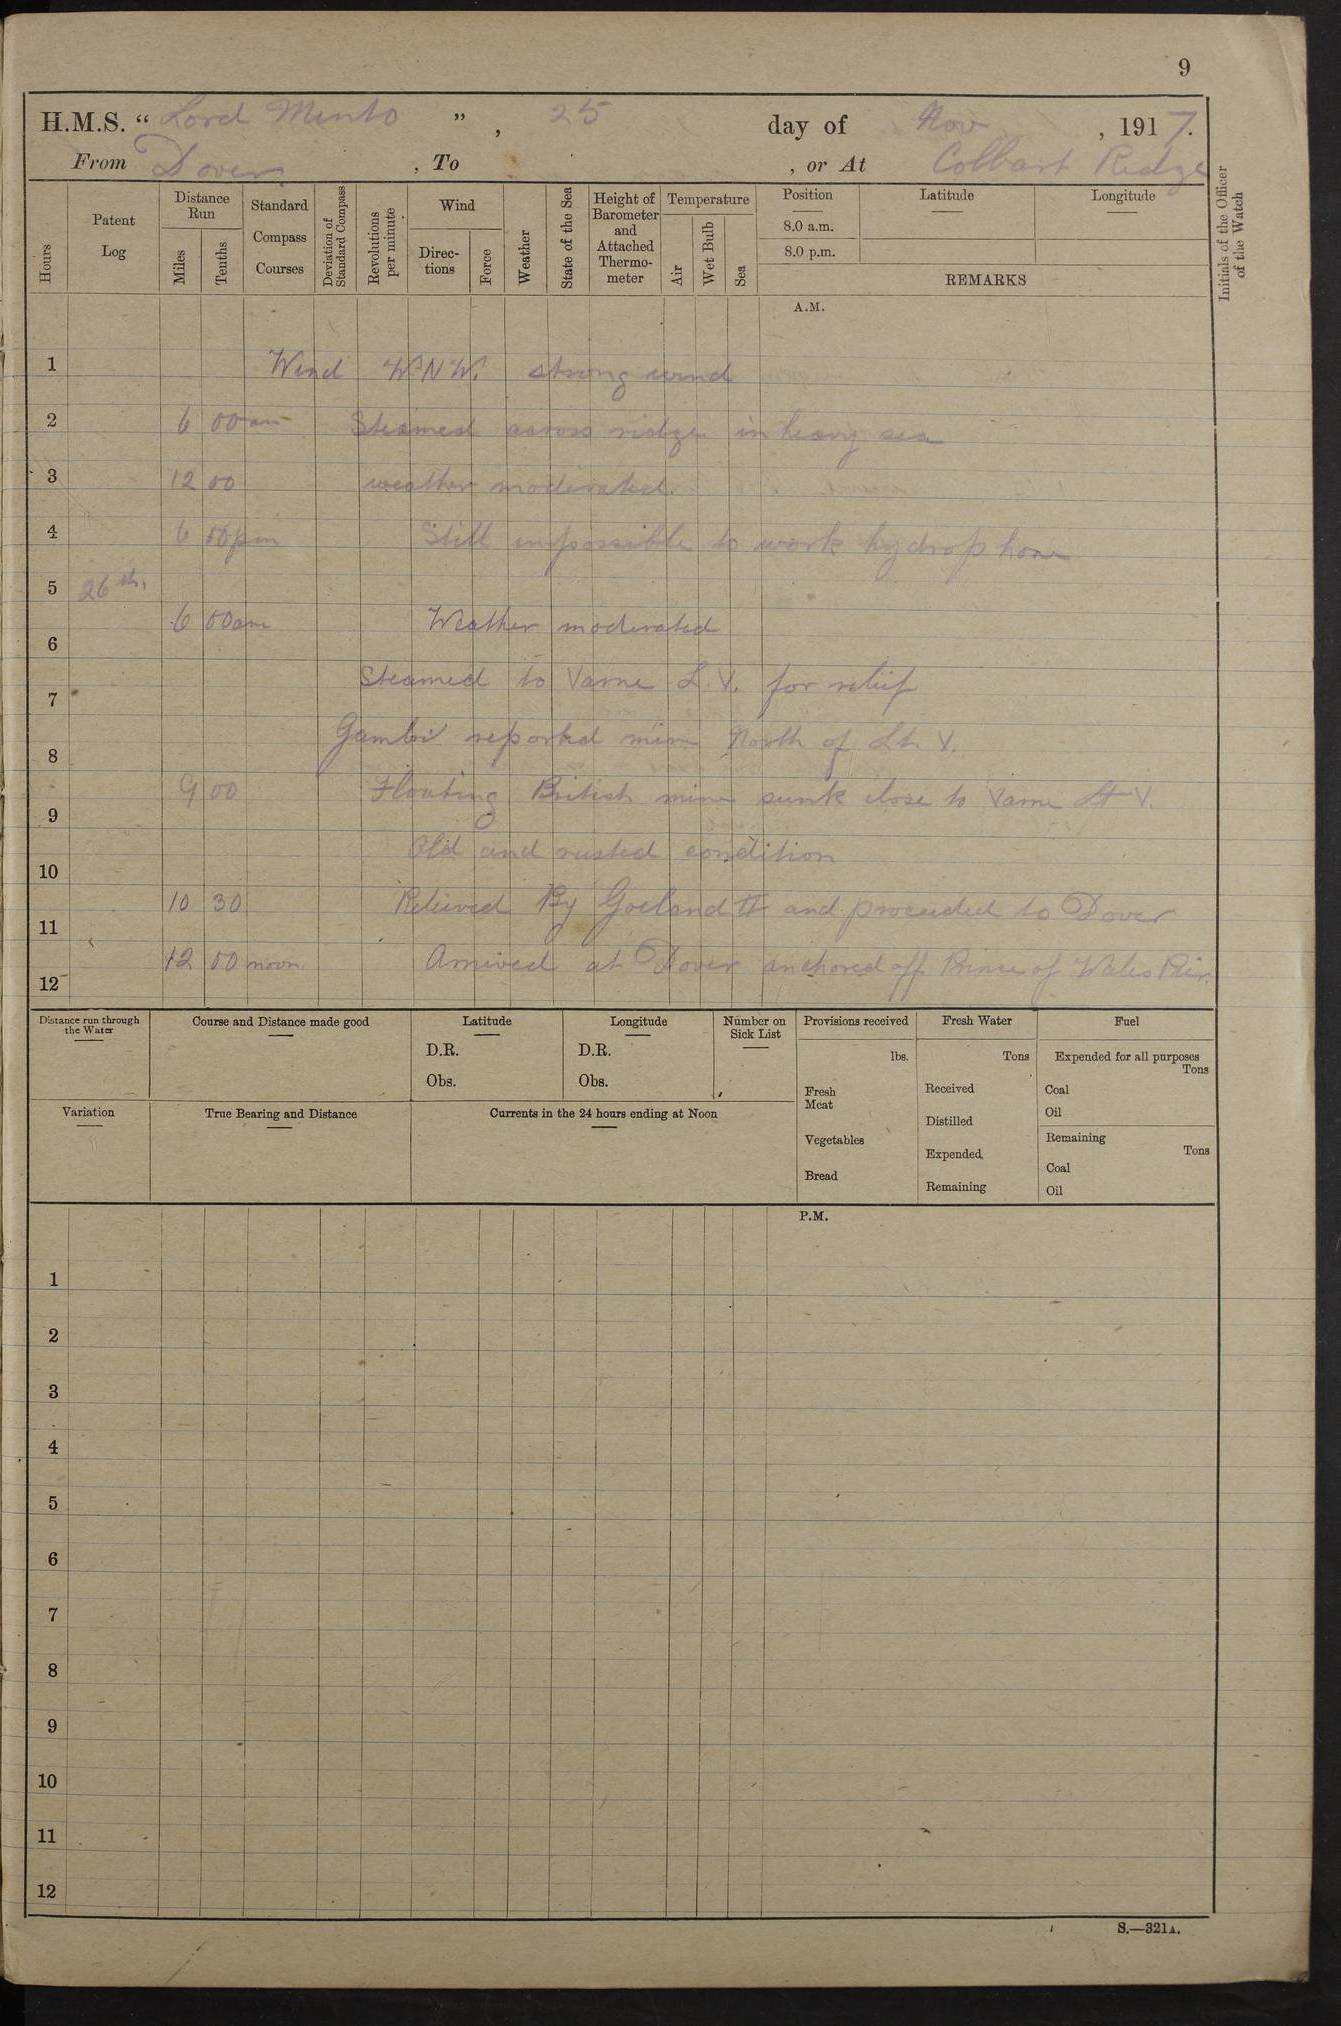 9
H.M.S. “ Lord Minto ” , 25 day of Nov , 1917.
From Dover , To , or At Colbart Ridge
Hours
Patent Log
Distance Run
Miles
Tenths
Standard Compass Courses
Deviation of Standard Compass
Revolutions per minute
Wind
Direc-tions
Force
Weather
State of the Sea
Height of Barometer and Attached Thermo-meter
Temperature
Air
Wet Bulb
Sea
Position
8.0 a.m.
8.0 p.m.
Latitude
Longitude
REMARKS
Initials of the Officer of the Watch
A.M.
1 Wind W.N.W. strong wind
2 6 00am Steamed across ridge in heavy sea
3 12 00 weather moderated.
4 6 00pm Still impossible to work hydrophone
5 26th.
6 00am Weather moderated
6
Steamed to Varne L.V. for relief
7
reported mine North of Lt. V.
8
9 00 Floating British mine sunk close to Varne Lt V.
9
Old and rusted condition
10
10 30 Relieved By Goeland II and proceeded to Dover
11
12 00 noon. Arrived at Dover anchored off Prince of Wales Pier.
12
Distance run through the Water
Course and Distance made good
Latitude
D.R.
Obs.
Longitude
D.R.
Obs.
Number on Sick List
Provisions received
lbs.
Fresh Meat
Vegetables
Bread
Fresh Water
Tons
Received
Distilled
Expended
Remaining
Fuel
Expended for all purposes
Tons
Coal
Oil
Remaining
Tons
Coal
Oil
Variation
True Bearing and Distance
Currents in the 24 hours ending at Noon
P.M.
1
2
3
4
5
6
7
8
9
10
11
12
S.—321A.